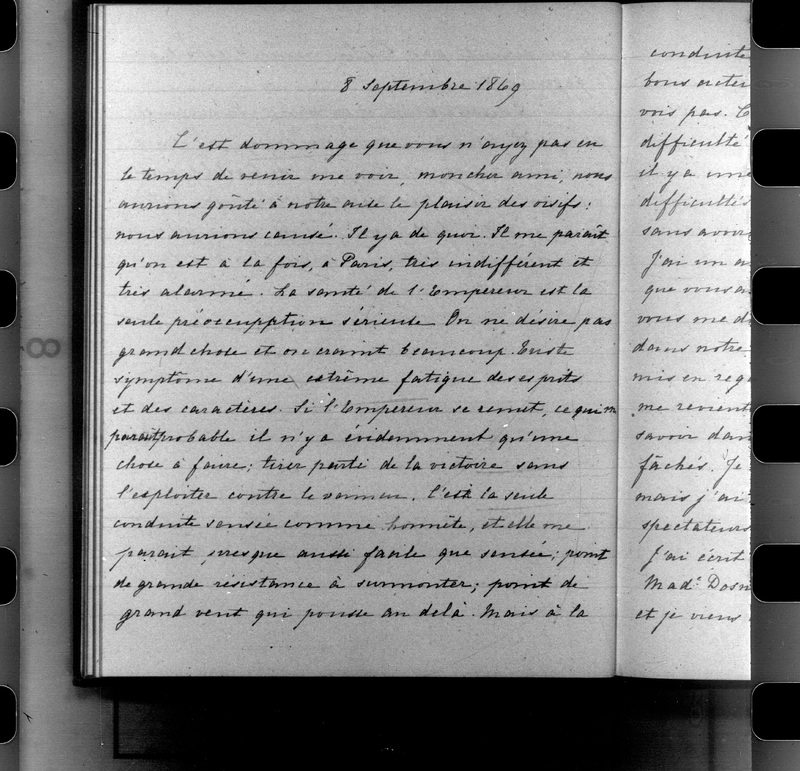 8 Septembre 1869
C'est dommage que vous n'ayez pas eu
le temps de venir me voir, mon cher ami, nous
aurions goûté à notre aise le plaisir des oisifs :
nous aurions causé. Il y a de quoi. Il me paraît
qu'on est à la fois, à Paris, très indifférent et
très alarmé. La santé de l'Empereur est la
seule préoccupption sérieuse On ne désire pas
grand chose et on craint beaucoup. Triste
symptôme d'une extrême fatigue des esprits
et des caractères. Si l'Empereur se remet, ce qui m
parait probable il n'y a évidemment qu'une
chose à faire ; tirer parti de la victoire sans
l'exploiter contre le vaincu. C'est la seule
conduite sensée comme honnête, et elle me
parait presque aussi facile que sensée ; point
de grande résistance à surmonter ; point de
grand vent qui pousse au delà. Mais à la
conduite
vois pas.
difficulté
il y a une
difficultés
sans avoir
J'ai un
que vous
vous me
dans notre
mis en
me revient
savoir dan
fâchés. Je
mais j'ai
spectateurs
J'ai écrit
Mad.e Dosn
et je viens